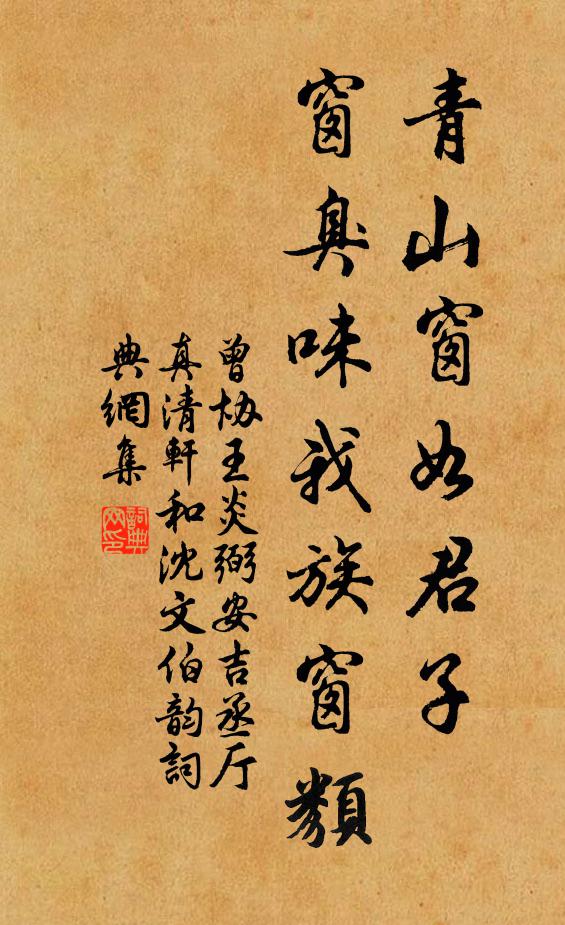 青山窗如君子
窗臭味我族窗類
曾协王炎弼安吉丞厅
真清軒和沈文伯韵詞
典網集
詞典
网印